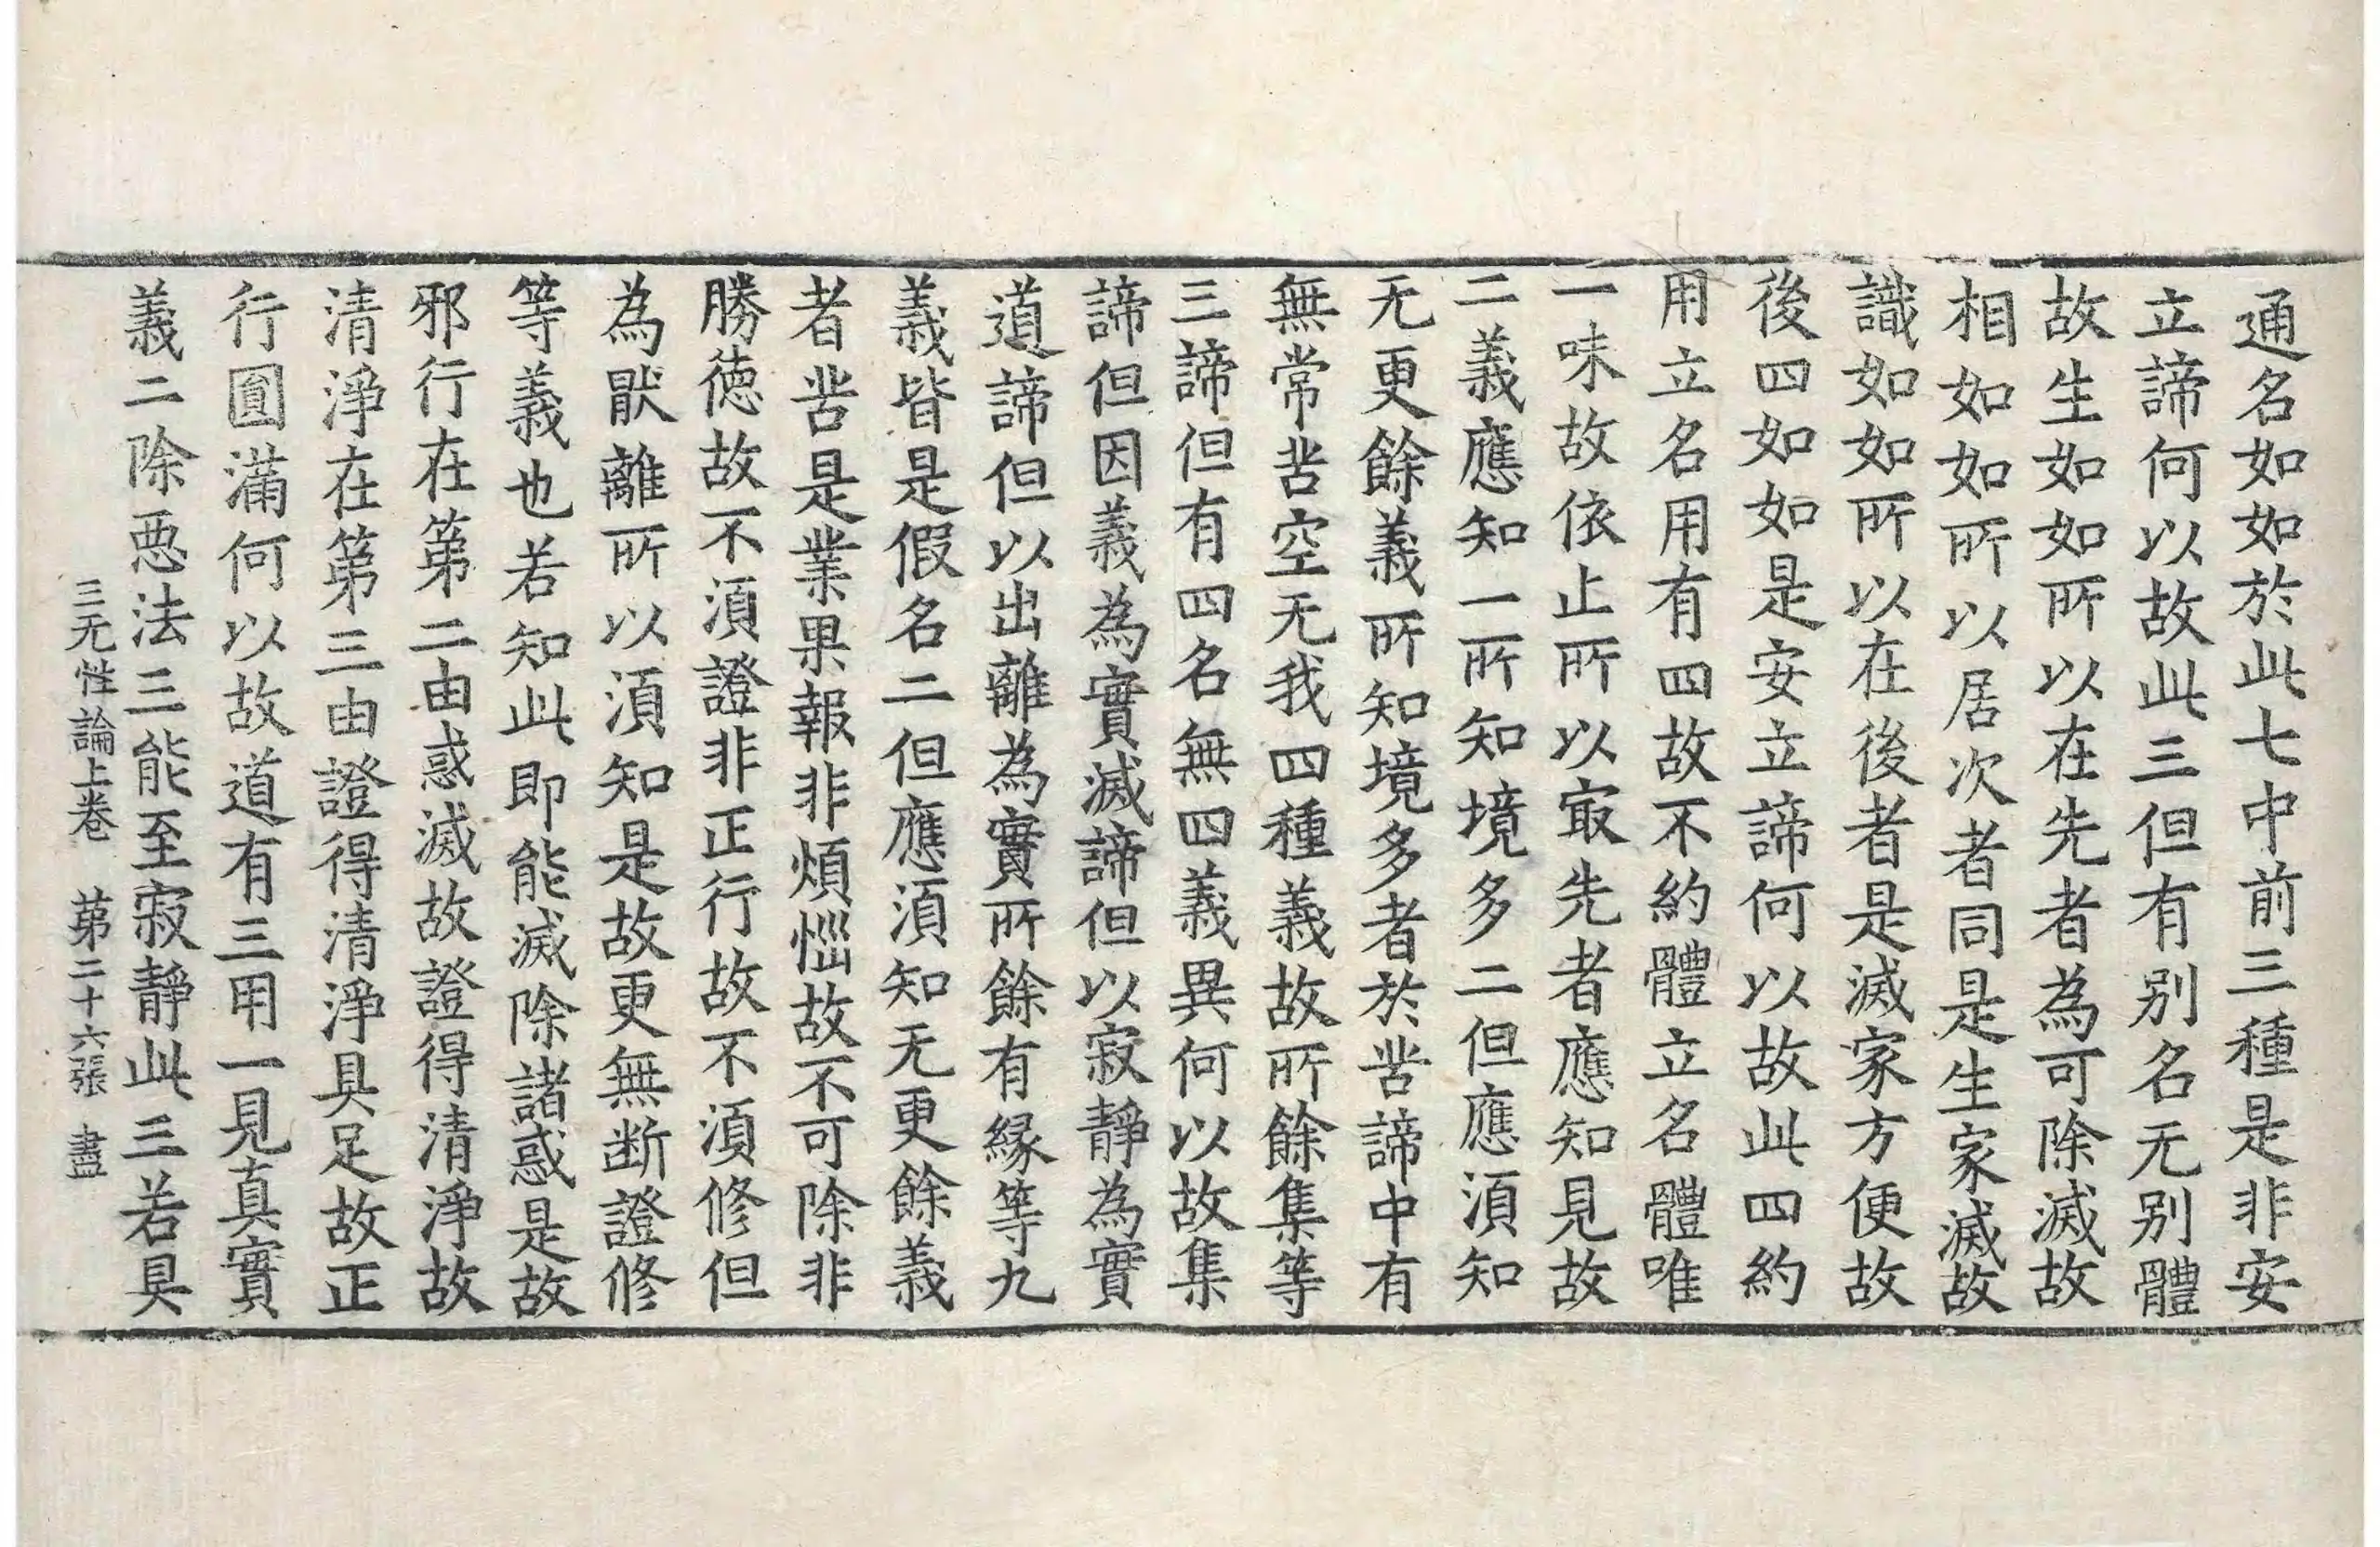 通名如如於此七中前三種是非安
立諦何以故此三但有别名无别體
故生如如所以在先者為可除滅故
相如如所以居次者同是生家滅故
識如如所以在後者是滅家方便故
後四如如是安立諦何以故此四約
用立名用有四故不約體立名體唯
一味故依止所以㝡先者應知見故
二義應知一所知境多二但應湏知
无更餘義所知境多者於苦諦中有
無常苦空无我四種義故所餘集等
三諦但有四名無四義異何以故集
諦但因義為實滅諦但以寂靜為實
道諦但以出離為實所餘有縁等九
義皆是假名二但應湏知无更餘義
者苦是業果報非煩惱故不可除非
勝徳故不湏證非正行故不湏修但
為猒離所以湏知是故更無断證修
等義也若知此即能滅除諸惑是故
邪行在第二由惑滅故證得清淨故
清淨在第三由證得清淨具足故正
行圓滿何以故道有三用一見真實
義二除惡法三能至寂靜此三若具
三无性論上卷　第二十六張　盡